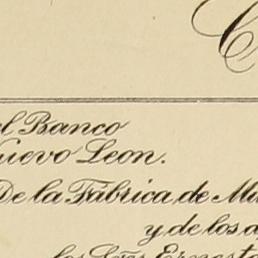 el Banco
Nuevo Leon.
De la Fábrica de
y de los
los Sres Ernesto